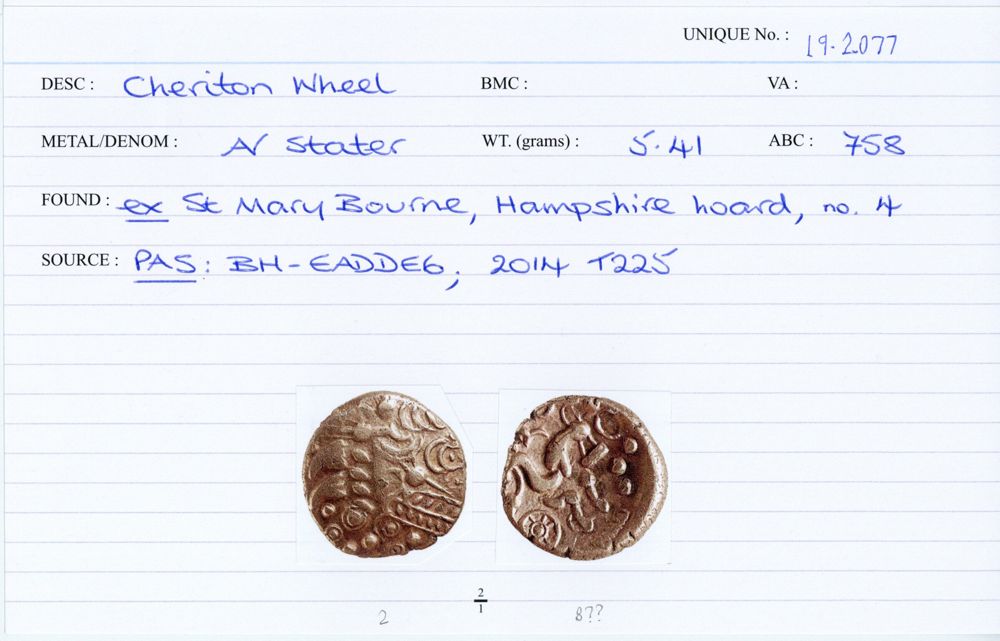 UNIQUE No. : 19.2077
DESC : Cheriton Wheel BMC : VA :
METAL/DENOM : AV Stater WT. (grams) : 5.41 ABC : 758
FOUND : ex St Mary Bourne, Hampshire hoard, no. 4
SOURCE : PAS: BH-EADDE6; 2014 T225
2/1
2 8??